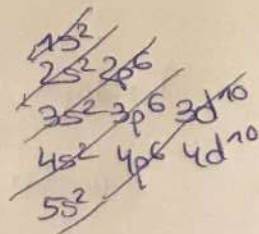 1s²
2s² 2p⁶
3s² 3p⁶ 3d¹⁰
4s² 4p⁶ 4d¹⁰
5s²